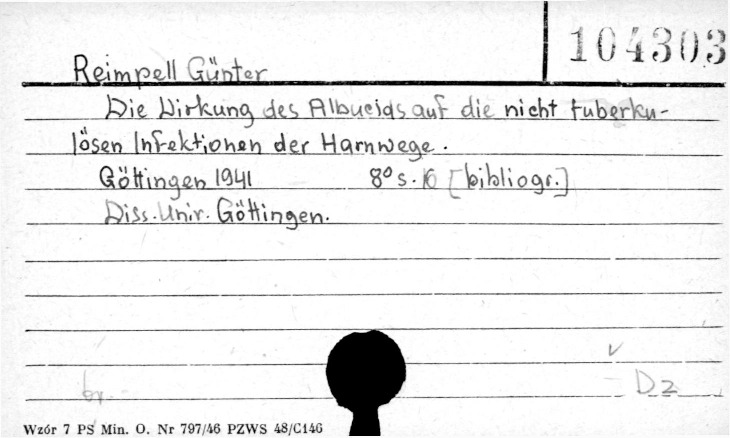 104303
Reimpell Günter
Die Wirkung des Albucids auf die nicht tuberku-
lösen Infektionen der Harnwege.
Göttingen 1941 8° s. 16 [bibliogr.]
Diss. Univ. Göttingen.
br.
Dz
Wzór 7 PS Min. O. Nr 797/46 PZWS 48/C146